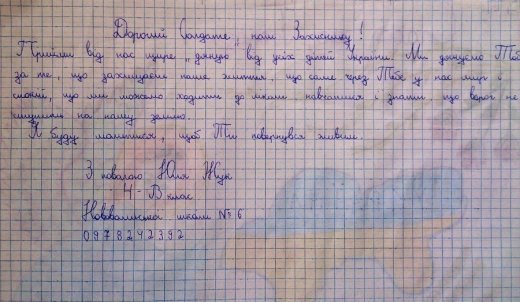 Дорогий Солдате, наш Захиснику!
Прийми від нас щире „дякую від усіх дітей України. Ми дякуємо Тобі
за те, що захищаєш наше життя, що саме через Тебе у нас мир і
спокій, що ми можемо ходити до школи навчатися і знати, що ворог не
на нашу землю.
Я буду молитися, щоб Ти повернувся живим.
З повагою Юлія Жук
4-В клас
школа № 6
0978242392